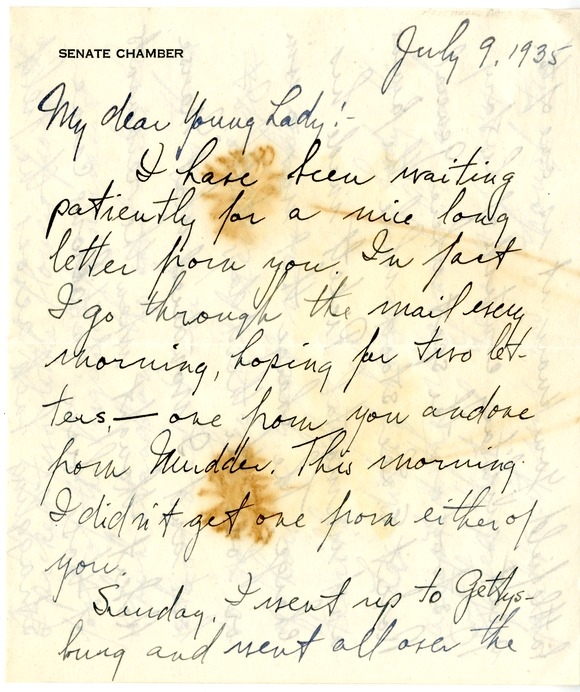 SENATE CHAMBER
July 9, 1935
My dear Young Lady:-
I have been waiting
patiently for a nice long
letter from you. In fact
I go through the mail every
morning, hoping for two let-
ters, — one from you and one
from Mudder. This morning
I didn't get one from either of
you.
Sunday, I went up to Gettys-
burg and went all over the